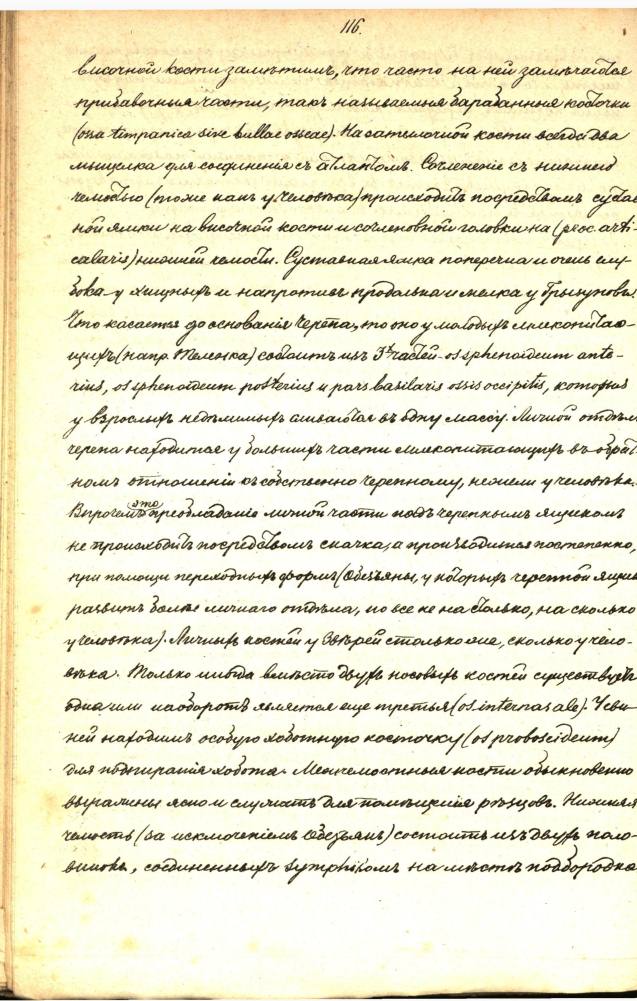 116.
височной кости замѣтимъ, что часто на ней замѣчаются
прибавочныя части, такъ называемыя барабанныя косточки
(ossa timpanica sive bullae osseae). На затылочной кости всегда два
мыщелка для соединенія съ атлантомъ. Сочлененіе съ нижнею
челюстью (тоже какъ у человѣка) происходитъ посредствомъ сустав
ной ямки на височной кости и сочленовной головки на (proc. arti-
calaris) нижней челюсти. Суставная ямка поперечна и очень глу
бока у хищныхъ и напротивъ продольна и мелка у грызуновъ.
Что касается до основанія черепа, то оно у молодыхъ млекопитаю-
щихъ (напр. теленка) состоитъ изъ 3хъ частей - os sphenoideum ante-
rius, os sphenoideum posterius и pars basilaris ossis occipitis, которыя
у взрослыхъ недѣлимыхъ сливаются въ одну массу. Личной отдѣлъ
черепа находится у большихъ части млекопитающихъ въ обрат
номъ отношеніи къ собственно черепному, нежели у человѣка.
Впрочемъ это преобладаніе личной части надъ черепнымъ ящикомъ
не происходитъ посредствомъ скачка, а производится постепенно,
при помощи переходныхъ формъ (Обезьяны, у которыхъ черепной ящик
развитъ болѣе личнаго отдѣла, но все не настолько, насколько
у человѣка). Личныхъ костей у звѣрей столько же, сколько у чело-
вѣка. Только иногда вмѣсто двухъ носовыхъ костей существуетъ
одна или наоборотъ является еще третья (os internasale). У сви
ней находимъ особую хоботную косточку (os proboscideum)
для подпиранія хобота. Межчелюстныя кости обыкновенно
выражены ясно и служатъ для помѣщенія рѣзцовъ. Нижняя
челюсть (за исключеніемъ Обезьянъ) состоитъ изъ двухъ поло-
винокъ, соединенныхъ symphis'омъ на мѣстѣ подбородка